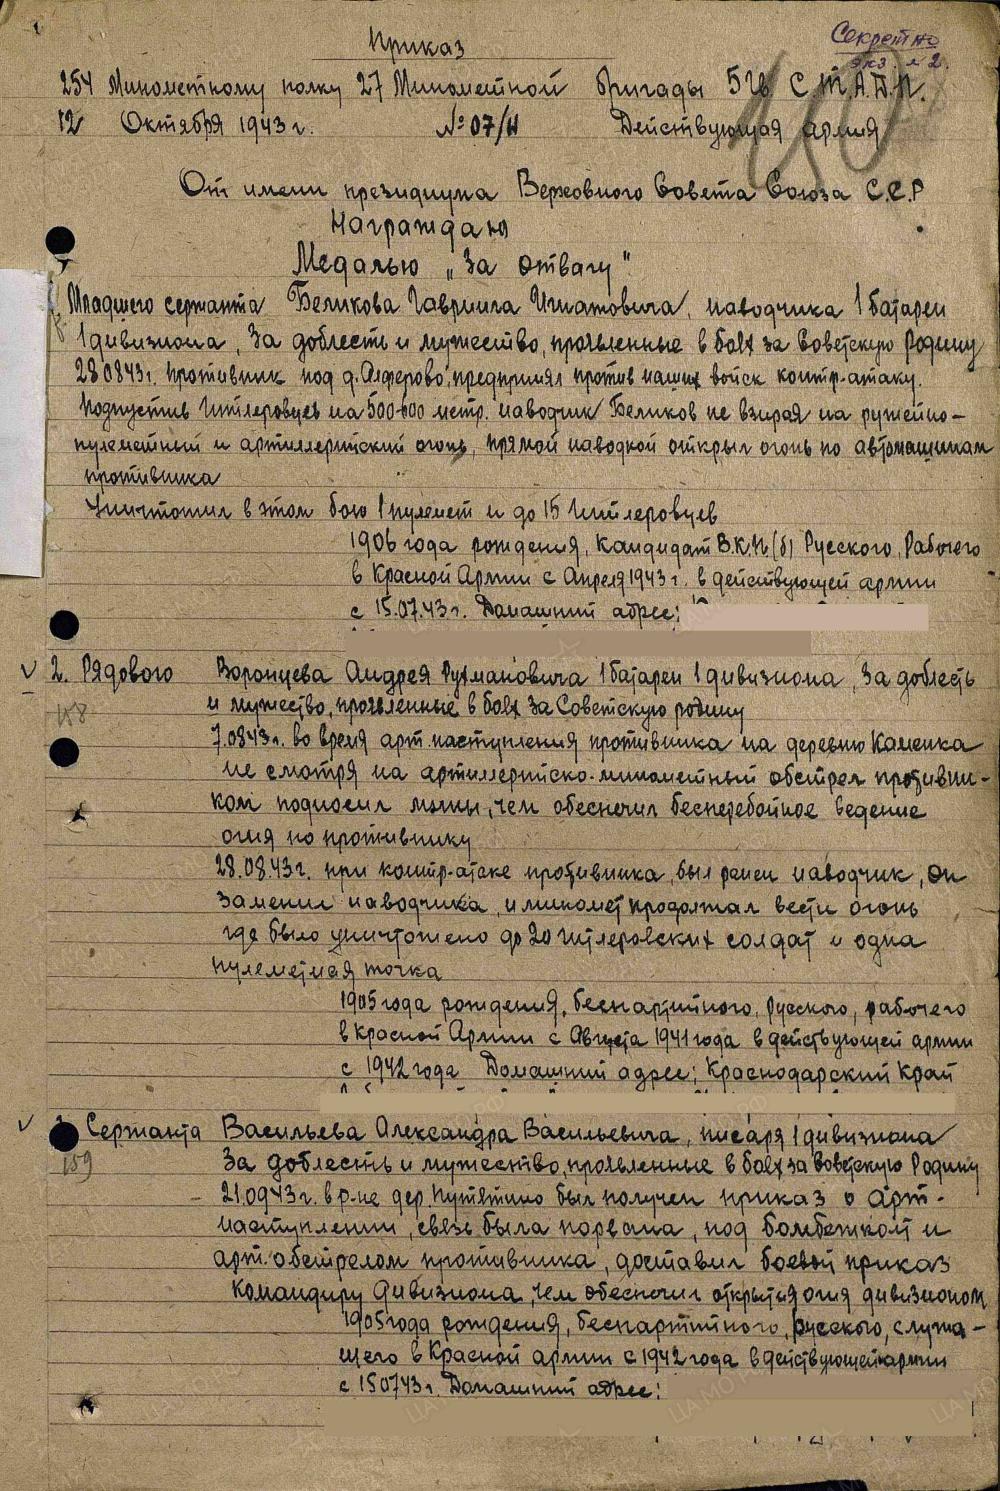 Секретно
экз. №2.
Приказ
254 Минометному полку 27 Минометной бригады 5 Гв. С.Т.А.Д.П.
12 Октября 1943 г. № 07/Н Действующая армия
От имени президиума Верховного Совета Союза С.С.Р
Награждаю
Медалью „За отвагу"
Младшего сержанта Беликова Гавриила Игнатовича, наводчика 1 батареи
1 дивизиона, За доблесть и мужество, проявленные в боях за Советскую Родину
28.08.43г. противник под д. Алферово, предпринял против наших войск контр-атаку.
Подпустив Гитлеровцев на 500-600 метр. наводчик Беликов не взирая на ружейно-
пулеметный и артиллерийский огонь, прямой наводкой открыл огонь по автомашинам
противника
Уничтожил в этом бою 1 пулемет и до 15 Гитлеровцев
1906 года рождения, Кандидат В.К.П.(б) Русского, Рабочего
в Красной Армии с Апреля 1943 г. в действующей армии
с 15.07.43 г. Домашний адрес:
2. Рядового Воронцева Андрея 1 батареи 1 дивизиона, За доблесть
и мужество, проявленные в боях за Советскую родину
7.08.43г. во время арт. наступления противника на деревню Каменка
не смотря на артиллерийско-минометный обстрел противни-
ком подносил мины, чем обеспечил бесперебойное ведение
огня по противнику
28.08.43г. при контр-атаке противника, был ранен наводчик, он
заменил наводчика, и миномет продолжал вести огонь
где было уничтожено до 20 гитлеровских солдат и одна
пулеметная точка
1905 года рождения, беспартийного, русского, рабочего
в Красной Армии с Августа 1941 года в действующей армии
с 1942 года Домашний адрес: Краснодарский Край
Сержанта Васильева Александра Васильевича, писаря 1 дивизиона
159 За доблесть и мужество, проявленные в боях за Советскую Родину
21.09.43г. в р-не дер. Путятино был получен приказ о арт-
наступлении, связь была порвана, под бомбежкой и
арт. обстрелом противника, доставил боевой приказ
командиру дивизиона, чем обеспечил открытия огня дивизионом
1905 года рождения, беспартийного, русского, служа-
щего в Красной армии с 1942 года в действующей армии
с 15.07.43г. Домашний адрес: